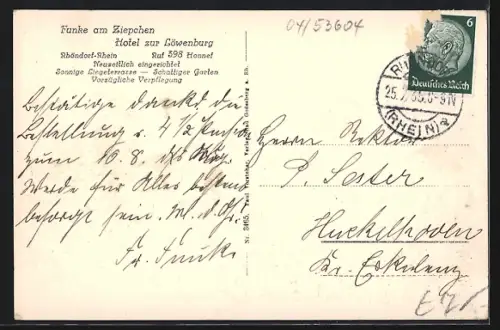 Funke am Ziepchen
Hotel zur Löwenburg
Rhöndorf-Rhein Ruf 398 Honnef
Neuzeitlich eingerichtet
Sonnige Liegeterrasse — Schattiger Garten
Vorzügliche Verpflegung
04/53604
6
Deutsches Reich
25.7.35.8-9N
(RHEIN) a
Bestätige dankd. die
Bestellung v. 4 1/2
zum 10.8. ds
Werde für Alles bestens
besorgt sein.
Fr. Funke
Herrn Rektor
P. Sester
Huckelhoven
Kr. Erkelenz
Nr. 3465